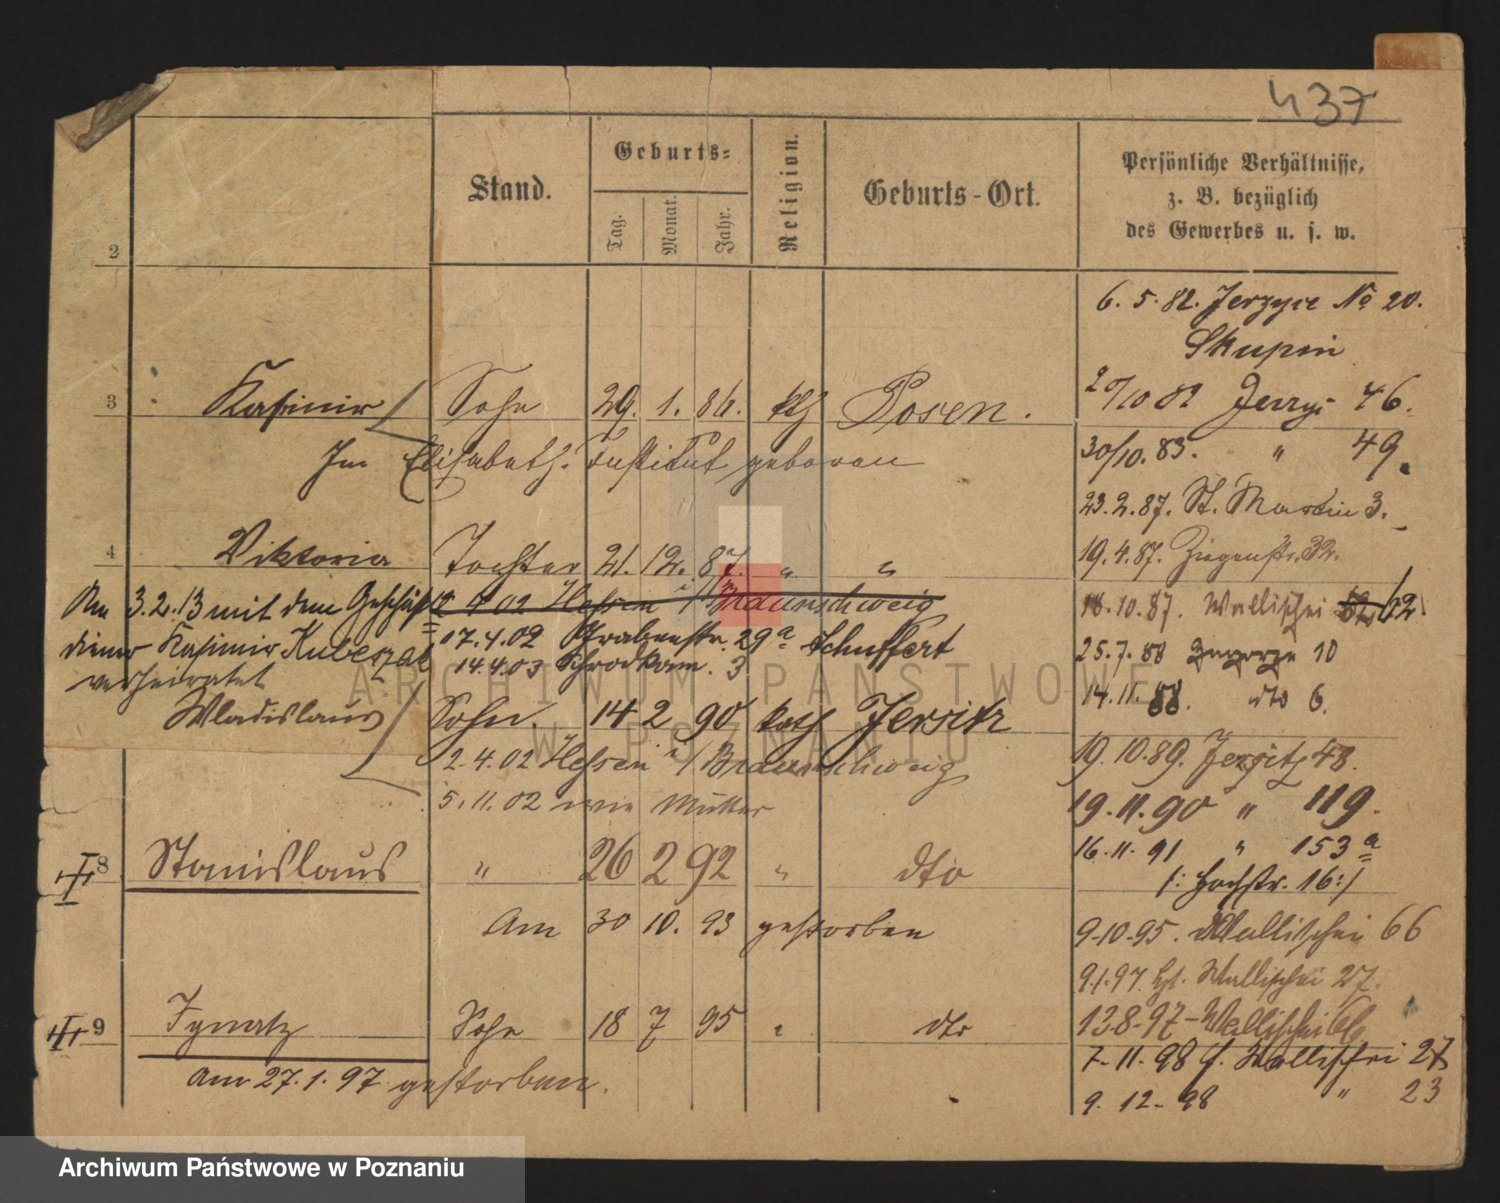 437
Stand.
Geburts=
Tag.
Monat.
Jahr.
Religion.
Geburts-Ort.
Persönliche Verhältnisse,
z. B. bezüglich
des Gewerbes u. s. w.
2
6. 5. 82. Jerzyce No 20.
Skupin
3 Kasimir Sohn 29. 1. 86. kth Posen.
20/10 82 Jerzyc 46.
Im Elisabeth. Institut geboren
30/10. 83. " 49.
23. 2. 87. St. Martin 3.
4 Viktoria Tochter 21. 12. 87. " "
19. 4. 87. Ziegenstr.
Am 3.2.13 mit dem Geschäfts
4 02 Hessen i/Braunschweig
18. 10. 87. Wallischei 52 62.
diener Kasimir Kuberzak
17.4.02 Grabenstr. 29a Schuffert
25. 7. 88 10
verheiratet
14.4.03 Schrodkam. 3
14. 11. 88. dto 6.
Wladislaus Sohn. 14 2 90 kath Jersitz
2. 4. 02 Hessen i/Braunschweig
19. 10. 89. Jersitz 48.
5. 11. 02 wie Mutter
19. 11. 90 " 119.
16. 11. 91 " 153 a
8 Stanislaus " 26 2 92 " dto
/: Hochstr. 16 :/
Am 30 10. 93 gestorben
9.10.95. Wallischei 66
9.1.97. Wallischei 27.
9 Ignatz Sohn 18 7 95 " dto
13.8.97 - Wallischei 66
7. 11. 98 Wallischei 27
Am 27. 1. 97 gestorben.
9. 12 - 98 " 23
ARCHIWUM PAŃSTWOWE
W POZNANIU
Archiwum Państwowe w Poznaniu